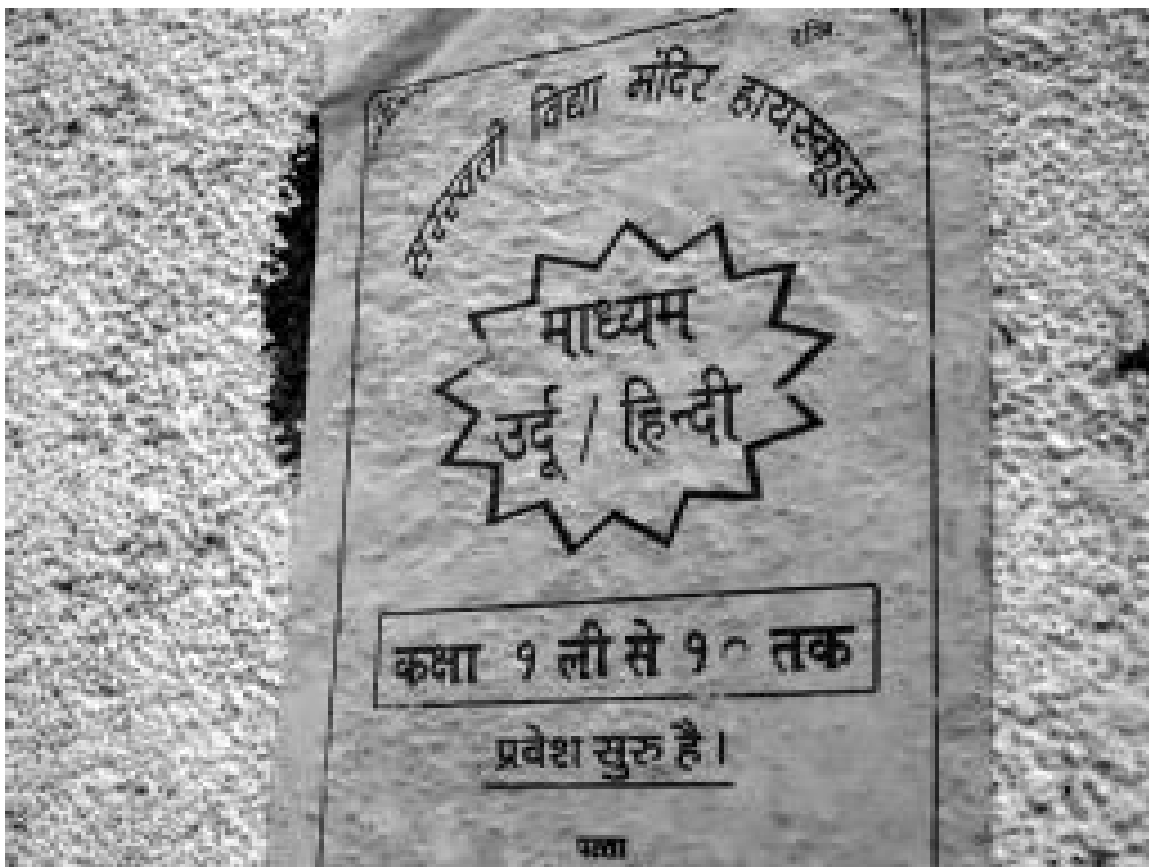 रजि.
सरस्वती विद्या मंदिर हायस्कूल
माध्यम
उर्दू / हिन्दी
कक्षा १ ली से १० तक
प्रवेश सुरु है।
पत्ता